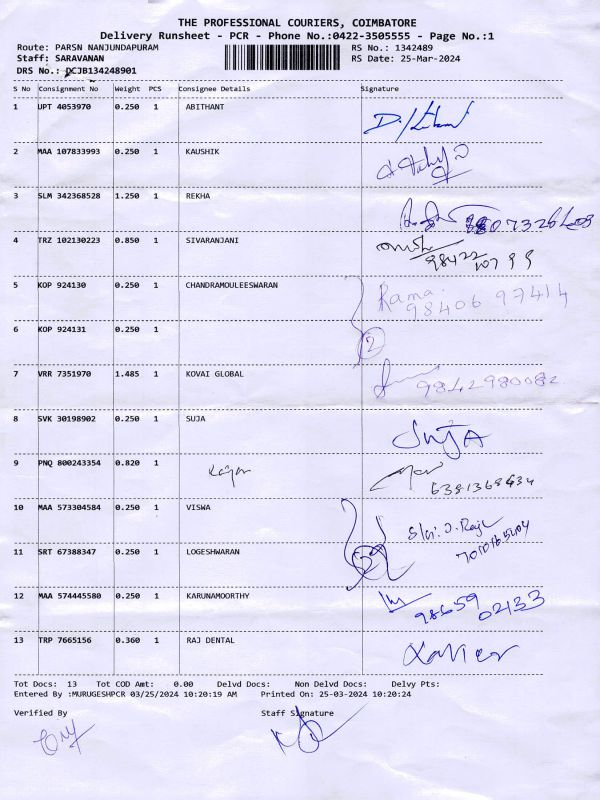 THE PROFESSIONAL COURIERS, COIMBATORE
Delivery Runsheet - PCR - Phone No.:0422-3505555 - Page No.:1
Route: PARSN NANJUNDAPURAM RS No.: 1342489
Staff: SARAVANAN RS Date: 25-Mar-2024
DRS No.: DCJB134248901
S No Consignment No Weight PCS Consignee Details Signature
1 UPT 4053970 0.250 1 ABITHANT
2 MAA 107833993 0.250 1 KAUSHIK
3 SLM 342368528 1.250 1 REKHA
4 TRZ 102130223 0.850 1 SIVARANJANI
98422
10799
5 KOP 924130 0.250 1 CHANDRAMOULEESWARAN Rama.
98406 97414
6 KOP 924131 0.250 1 2
7 VRR 7351970 1.485 1 KOVAI GLOBAL 9842980082
8 SVK 30198902 0.250 1 SUJA SUJA
9 PNQ 800243354 0.820 1
6381368434
10 MAA 573304584 0.250 1 VISWA
11 SRT 67388347 0.250 1 LOGESHWARAN 2
12 MAA 574445580 0.250 1 KARUNAMOORTHY
98659
02133
13 TRP 7665156 0.360 1 RAJ DENTAL Xavier
Tot Docs: 13 Tot COD Amt: 0.00 Delvd Docs: Non Delvd Docs: Delvy Pts:
Entered By :MURUGESHPCR 03/25/2024 10:20:19 AM Printed On: 25-03-2024 10:20:24
Verified By Staff Signature